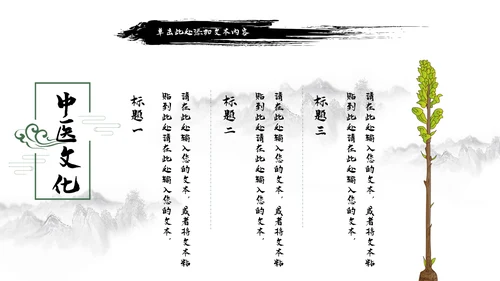 单击此处添加文本内容
中医文化
标题一
请在此处输入您的文本，或者将文本粘
贴到此处请在此处输入您的文本，
标题二
请在此处输入您的文本，或者将文本粘
贴到此处请在此处输入您的文本，
标题三
请在此处输入您的文本，或者将文本粘
贴到此处请在此处输入您的文本，